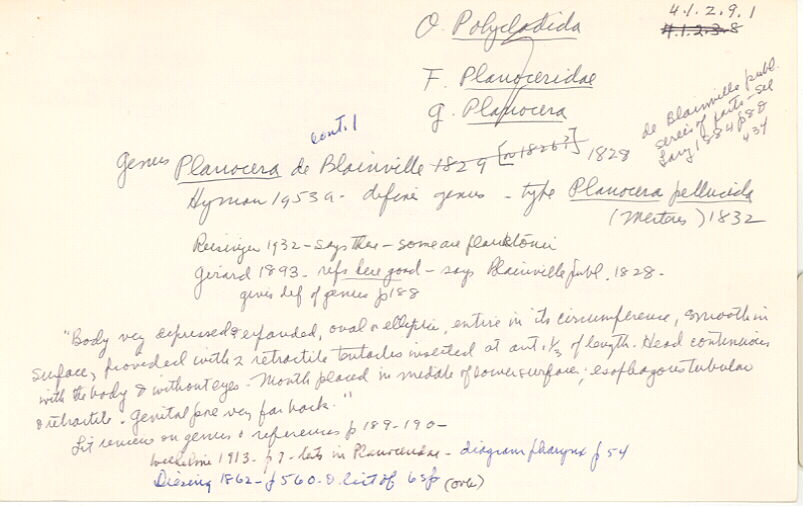 4.1.2.9.1
4.1.2.3.8
O. Polycladida
F. Planoceridae
g. Planocera
de Blainville publ.
series of parts - see
Lang 1884 p 8 &
434
cont. 1
genus Planocera de Blainville 1829 [or 1826?] 1828
Hyman 1953a - define genus - type Planocera pellucida
(Mertens) 1832
Reisinger 1932 - says these - some are planktonic
Girard 1893 - refs here good - says Blainville publ. 1828 -
gives def of genus p 188
"Body very depressed & expanded, oval or elliptic, entire in its circumference, smooth in
surface, provided with 2 retractile tentacles inserted at ant. 1/3 of length. Head continuous
with the body & without eyes. Mouth placed in middle of lower surface; esophagous tubular
& retractile - Genital pore very far back."
Lit review on genus & references p 189-190 -
1913 - p 7 - in Planoceridae - diagram pharynx p 54
Diesing 1862 - p 560 - & list of 6 sp